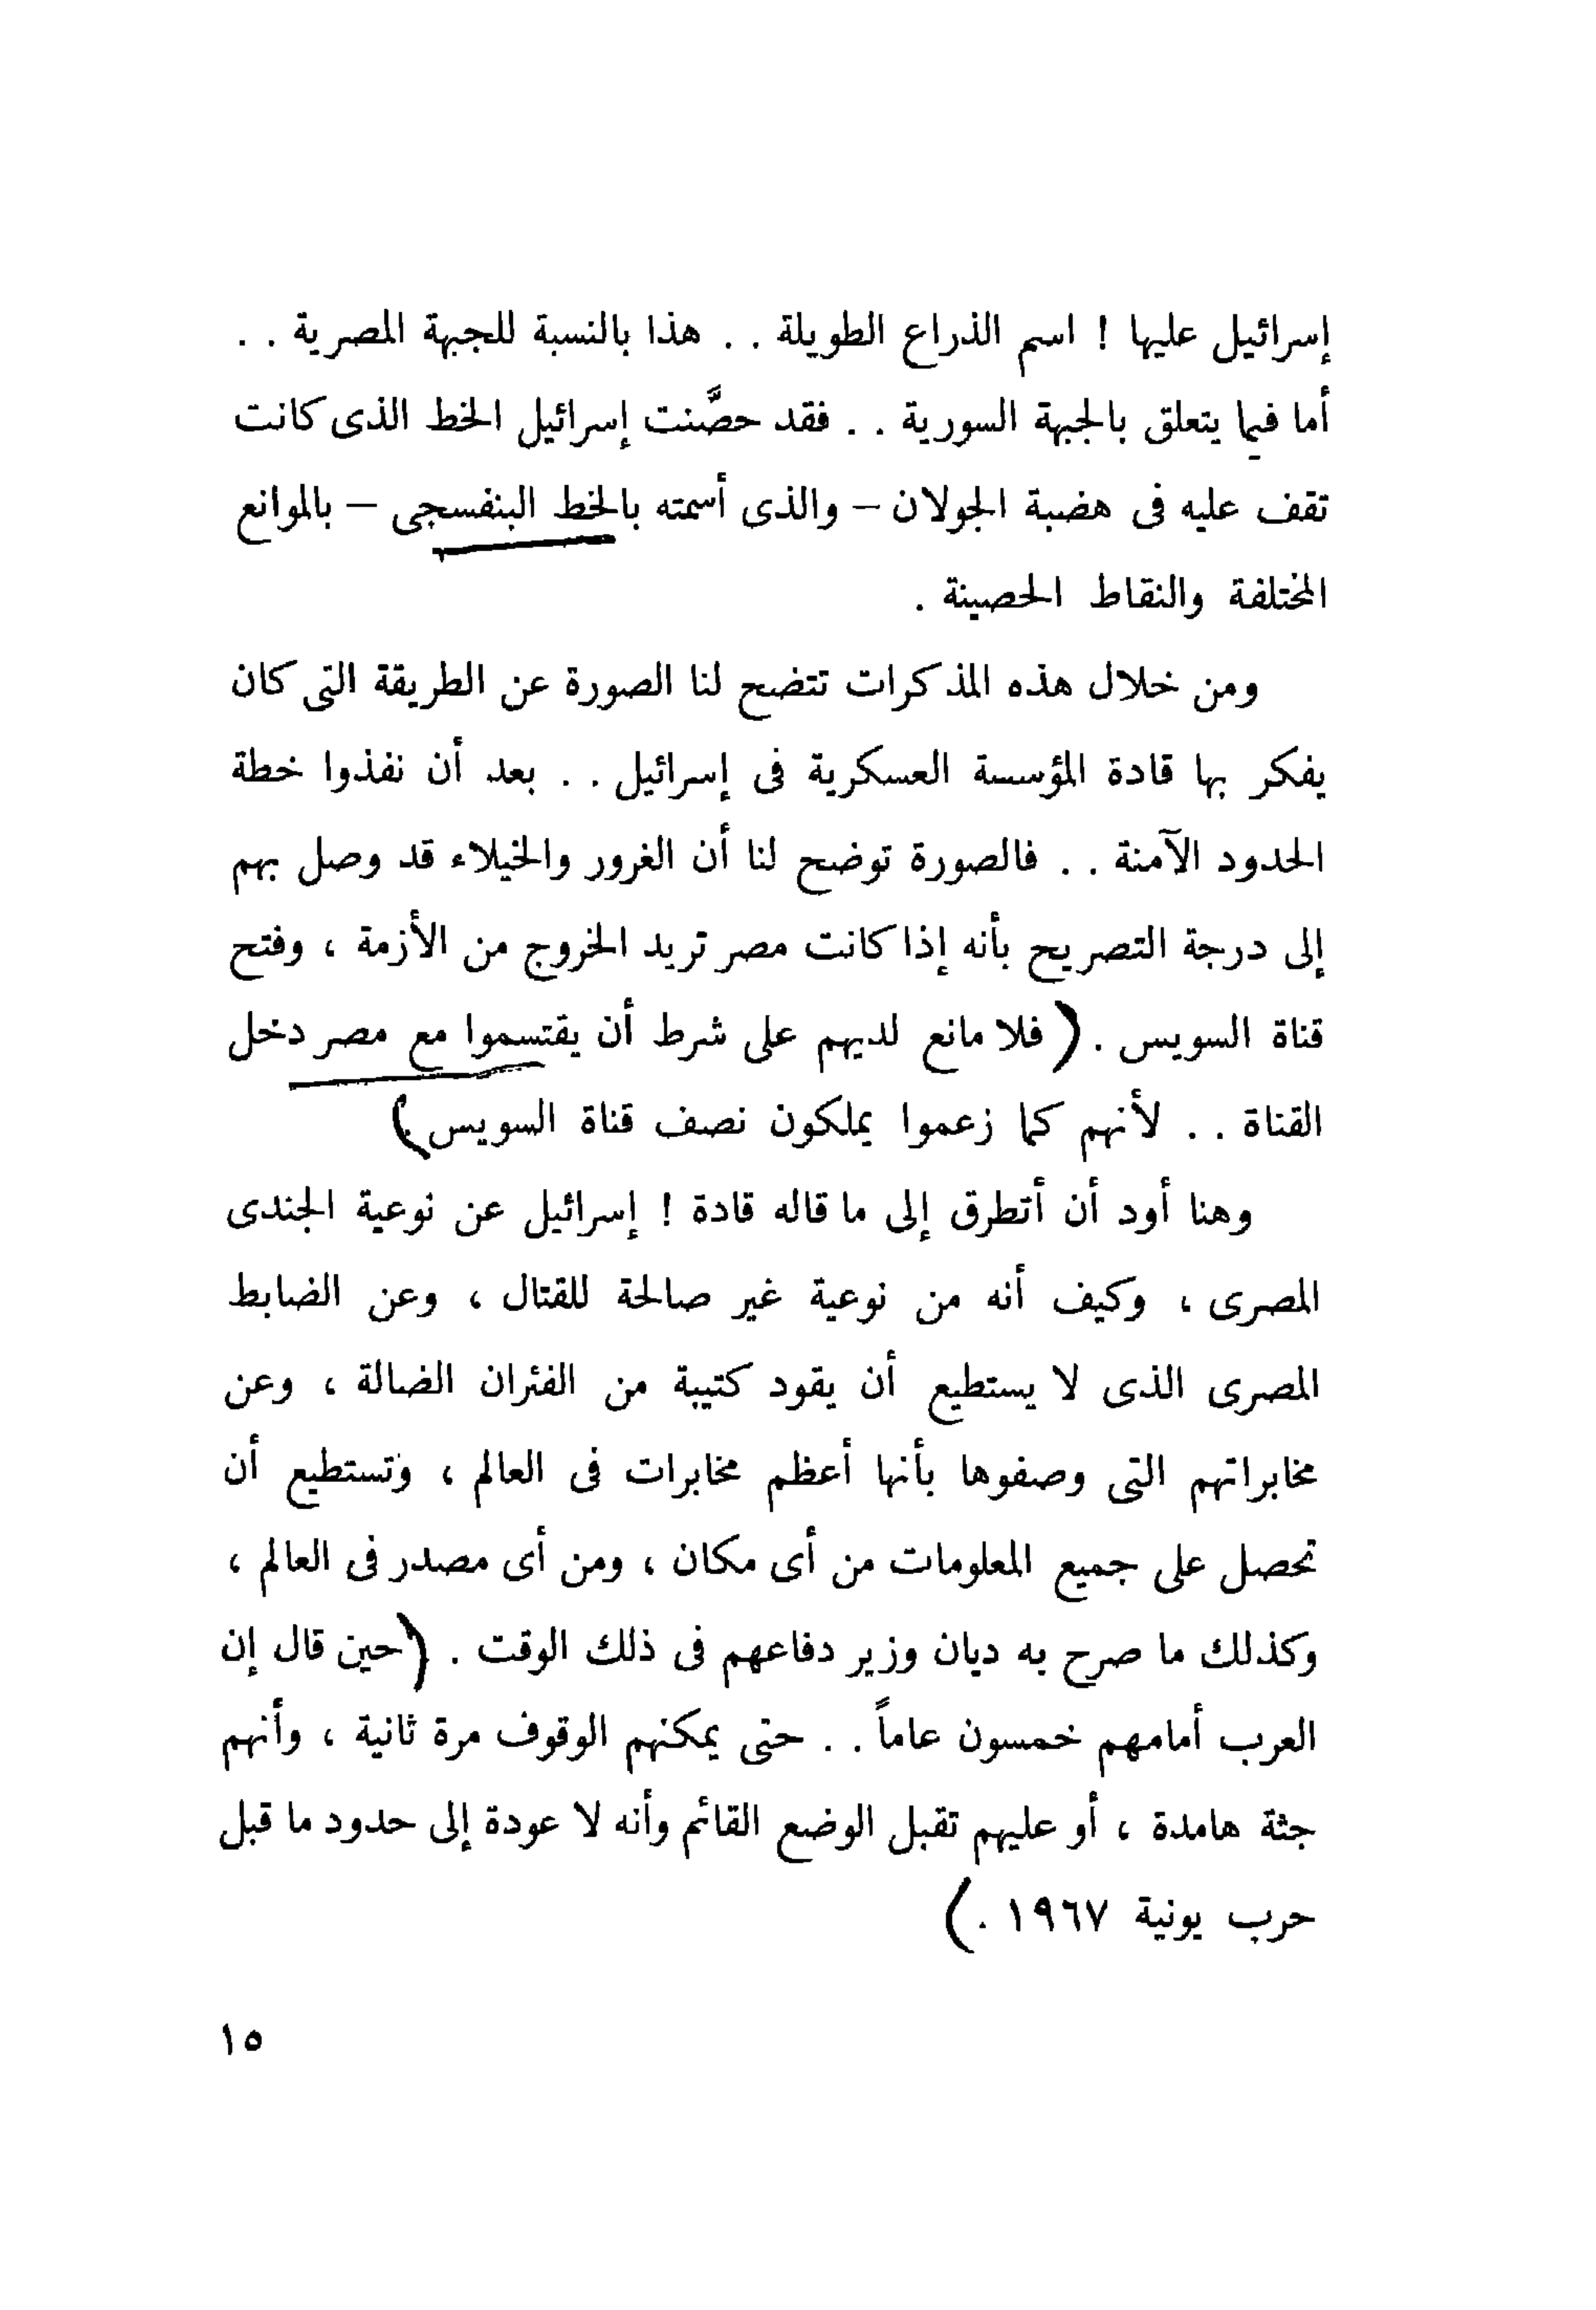 إسرائيل عليها ! اسم الذراع الطويلة . . هذا بالنسبة للجبهة المصرية . .
أما فيما يتعلق بالجبهة السورية . . فقد حصَّنت إسرائيل الخط الذى كانت
تقف عليه فى هضبة الجولان – والذى أسمته بالخط البنفسجى – بالموانع
المختلفة والنقاط الحصينة .
ومن خلال هذه المذكرات تتضح لنا الصورة عن الطريقة التى كان
يفكر بها قادة المؤسسة العسكرية فى إسرائيل . . بعد أن نفذوا خطة
الحدود الآمنة . . فالصورة توضح لنا أن الغرور والخيلاء قد وصل بهم
إلى درجة التصريح بأنه إذا كانت مصر تريد الخروج من الأزمة ، وفتح
قناة السويس . (فلا مانع لديهم على شرط أن يقتسموا مع مصر دخل
القناة . . لأنهم كما زعموا يملكون نصف قناة السويس .)
وهنا أود أن أتطرق إلى ما قاله قادة ! إسرائيل عن نوعية الجندى
المصرى ، وكيف أنه من نوعية غير صالحة للقتال ، وعن الضابط
المصرى الذى لا يستطيع أن يقود كتيبة من الفئران الضالة ، وعن
مخابراتهم التى وصفوها بأنها أعظم مخابرات فى العالم ، وتستطيع أن
تحصل على جميع المعلومات من أى مكان ، ومن أى مصدر فى العالم ،
وكذلك ما صرح به ديان وزير دفاعهم فى ذلك الوقت . (حين قال إن
العرب أمامهم خمسون عاماً . . حتى يمكنهم الوقوف مرة ثانية ، وأنهم
جثة هامدة ، أو عليهم تقبل الوضع القائم وأنه لا عودة إلى حدود ما قبل
حرب يونية ١٩٦٧ .)
١٥